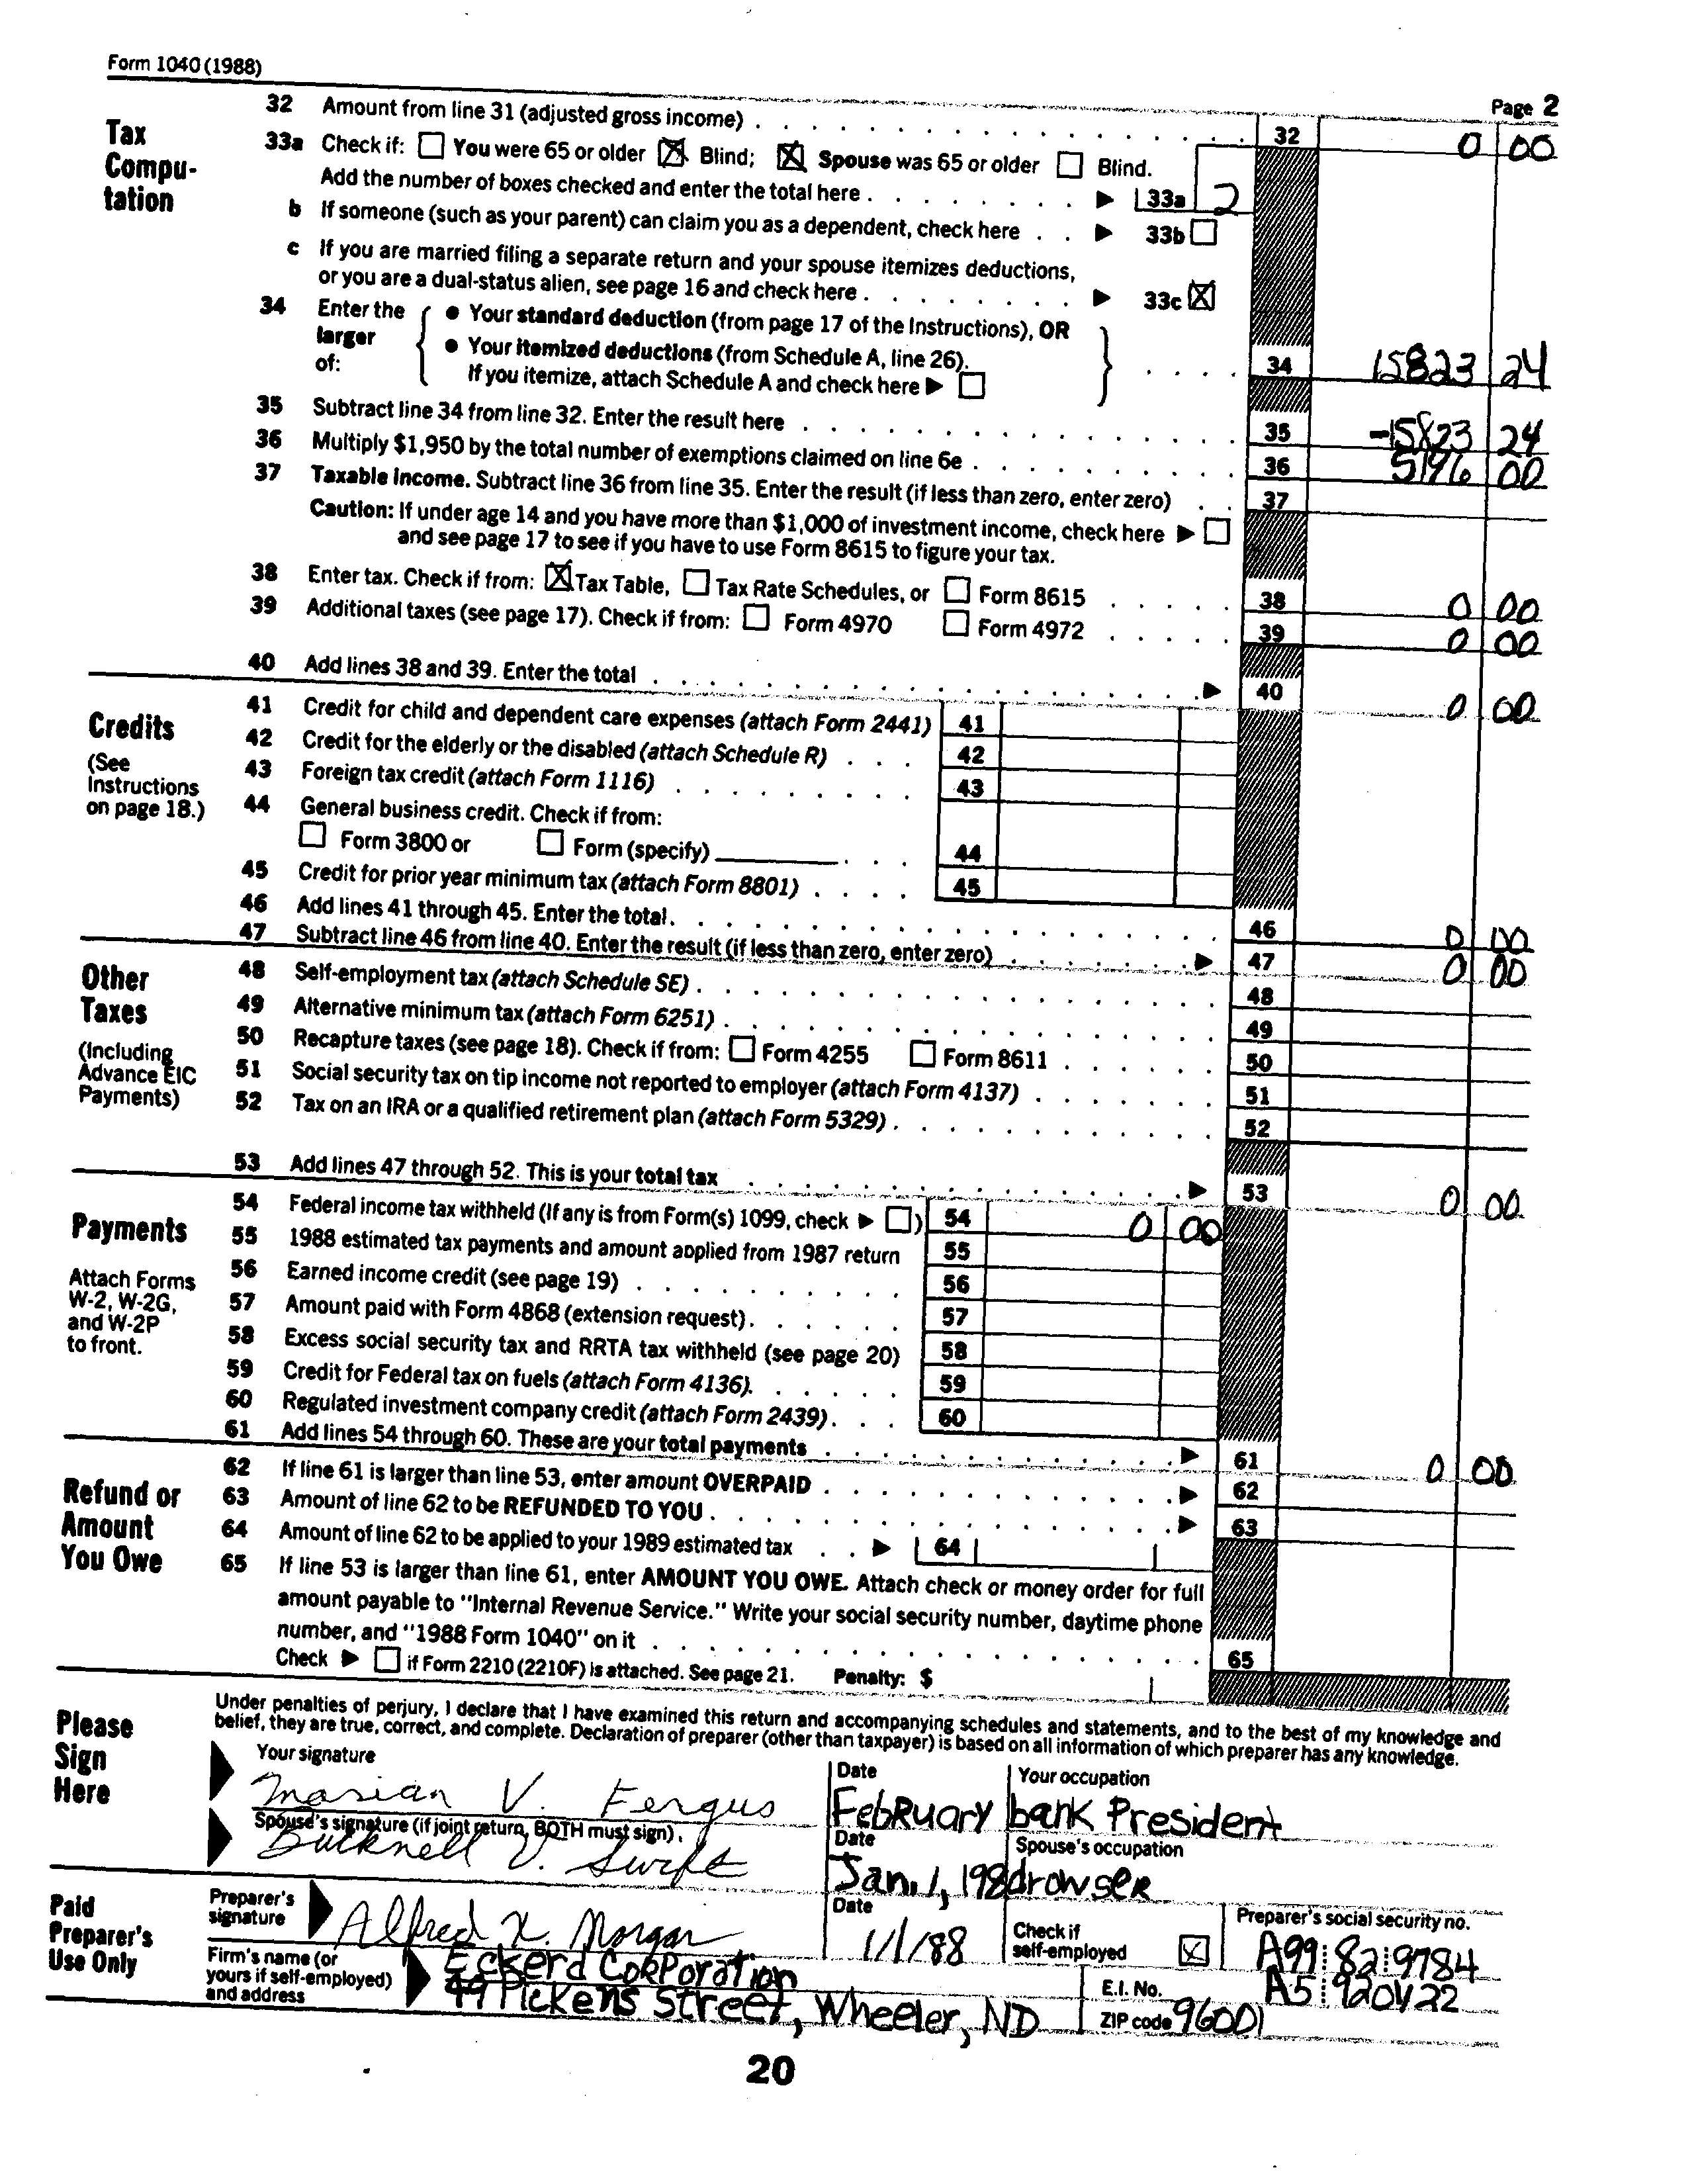 Form 1040 (1988)
Page 2
Tax Compu-tation
32 Amount from line 31 (adjusted gross income) 32 0 00
33a Check if: You were 65 or older X Blind; X Spouse was 65 or older Blind.
Add the number of boxes checked and enter the total here 33a 2
b If someone (such as your parent) can claim you as a dependent, check here 33b
c If you are married filing a separate return and your spouse itemizes deductions,
or you are a dual-status alien, see page 16 and check here 33c X
34 Enter the larger of:
• Your standard deduction (from page 17 of the Instructions), OR
• Your itemized deductions (from Schedule A, line 26).
If you itemize, attach Schedule A and check here
34 15823 24
35 Subtract line 34 from line 32. Enter the result here 35 -15823 24
36 Multiply $1,950 by the total number of exemptions claimed on line 6e 36 00
37 Taxable income. Subtract line 36 from line 35. Enter the result (if less than zero, enter zero) 37
Caution: If under age 14 and you have more than $1,000 of investment income, check here
and see page 17 to see if you have to use Form 8615 to figure your tax.
38 Enter tax. Check if from: X Tax Table, Tax Rate Schedules, or Form 8615 38 0 00
39 Additional taxes (see page 17). Check if from: Form 4970 Form 4972 39 0 00
40 Add lines 38 and 39. Enter the total 40 0 00
Credits
(See Instructions on page 18.)
41 Credit for child and dependent care expenses (attach Form 2441) 41
42 Credit for the elderly or the disabled (attach Schedule R) 42
43 Foreign tax credit (attach Form 1116) 43
44 General business credit. Check if from:
Form 3800 or Form (specify) 44
45 Credit for prior year minimum tax (attach Form 8801) 45
46 Add lines 41 through 45. Enter the total 46 0 00
47 Subtract line 46 from line 40. Enter the result (if less than zero, enter zero) 47 0 00
Other Taxes
(Including Advance EIC Payments)
48 Self-employment tax (attach Schedule SE) 48
49 Alternative minimum tax (attach Form 6251) 49
50 Recapture taxes (see page 18). Check if from: Form 4255 Form 8611 50
51 Social security tax on tip income not reported to employer (attach Form 4137) 51
52 Tax on an IRA or a qualified retirement plan (attach Form 5329) 52
53 Add lines 47 through 52. This is your total tax 53 0 00
Payments
Attach Forms W-2, W-2G, and W-2P to front.
54 Federal income tax withheld (If any is from Form(s) 1099, check ) 54 0 00
55 1988 estimated tax payments and amount applied from 1987 return 55
56 Earned income credit (see page 19) 56
57 Amount paid with Form 4868 (extension request) 57
58 Excess social security tax and RRTA tax withheld (see page 20) 58
59 Credit for Federal tax on fuels (attach Form 4136) 59
60 Regulated investment company credit (attach Form 2439) 60
61 Add lines 54 through 60. These are your total payments 61 0 00
Refund or Amount You Owe
62 If line 61 is larger than line 53, enter amount OVERPAID 62
63 Amount of line 62 to be REFUNDED TO YOU 63
64 Amount of line 62 to be applied to your 1989 estimated tax 64
65 If line 53 is larger than line 61, enter AMOUNT YOU OWE. Attach check or money order for full
amount payable to "Internal Revenue Service." Write your social security number, daytime phone
number, and "1988 Form 1040" on it 65
Check if Form 2210 (2210F) is attached. See page 21. Penalty: $
Please Sign Here
Under penalties of perjury, I declare that I have examined this return and accompanying schedules and statements, and to the best of my knowledge and
belief, they are true, correct, and complete. Declaration of preparer (other than taxpayer) is based on all information of which preparer has any knowledge.
Your signature Date Your occupation
Marian V. Fergus FebRuary bank President
Spouse's signature (if joint return, BOTH must sign) Date Spouse's occupation
Bucknell V. Swift Jan. 1, 198 drowseR
Paid Preparer's Use Only
Preparer's signature Date Check if self-employed Preparer's social security no.
Alfred X. Morgan 1/1/88 X A99 82 9784
Firm's name (or yours if self-employed) and address
Eckerd CoRPoration E.I. No. A5 920422
49 Pickens Street, Wheeler, ND ZIP code 96001
20